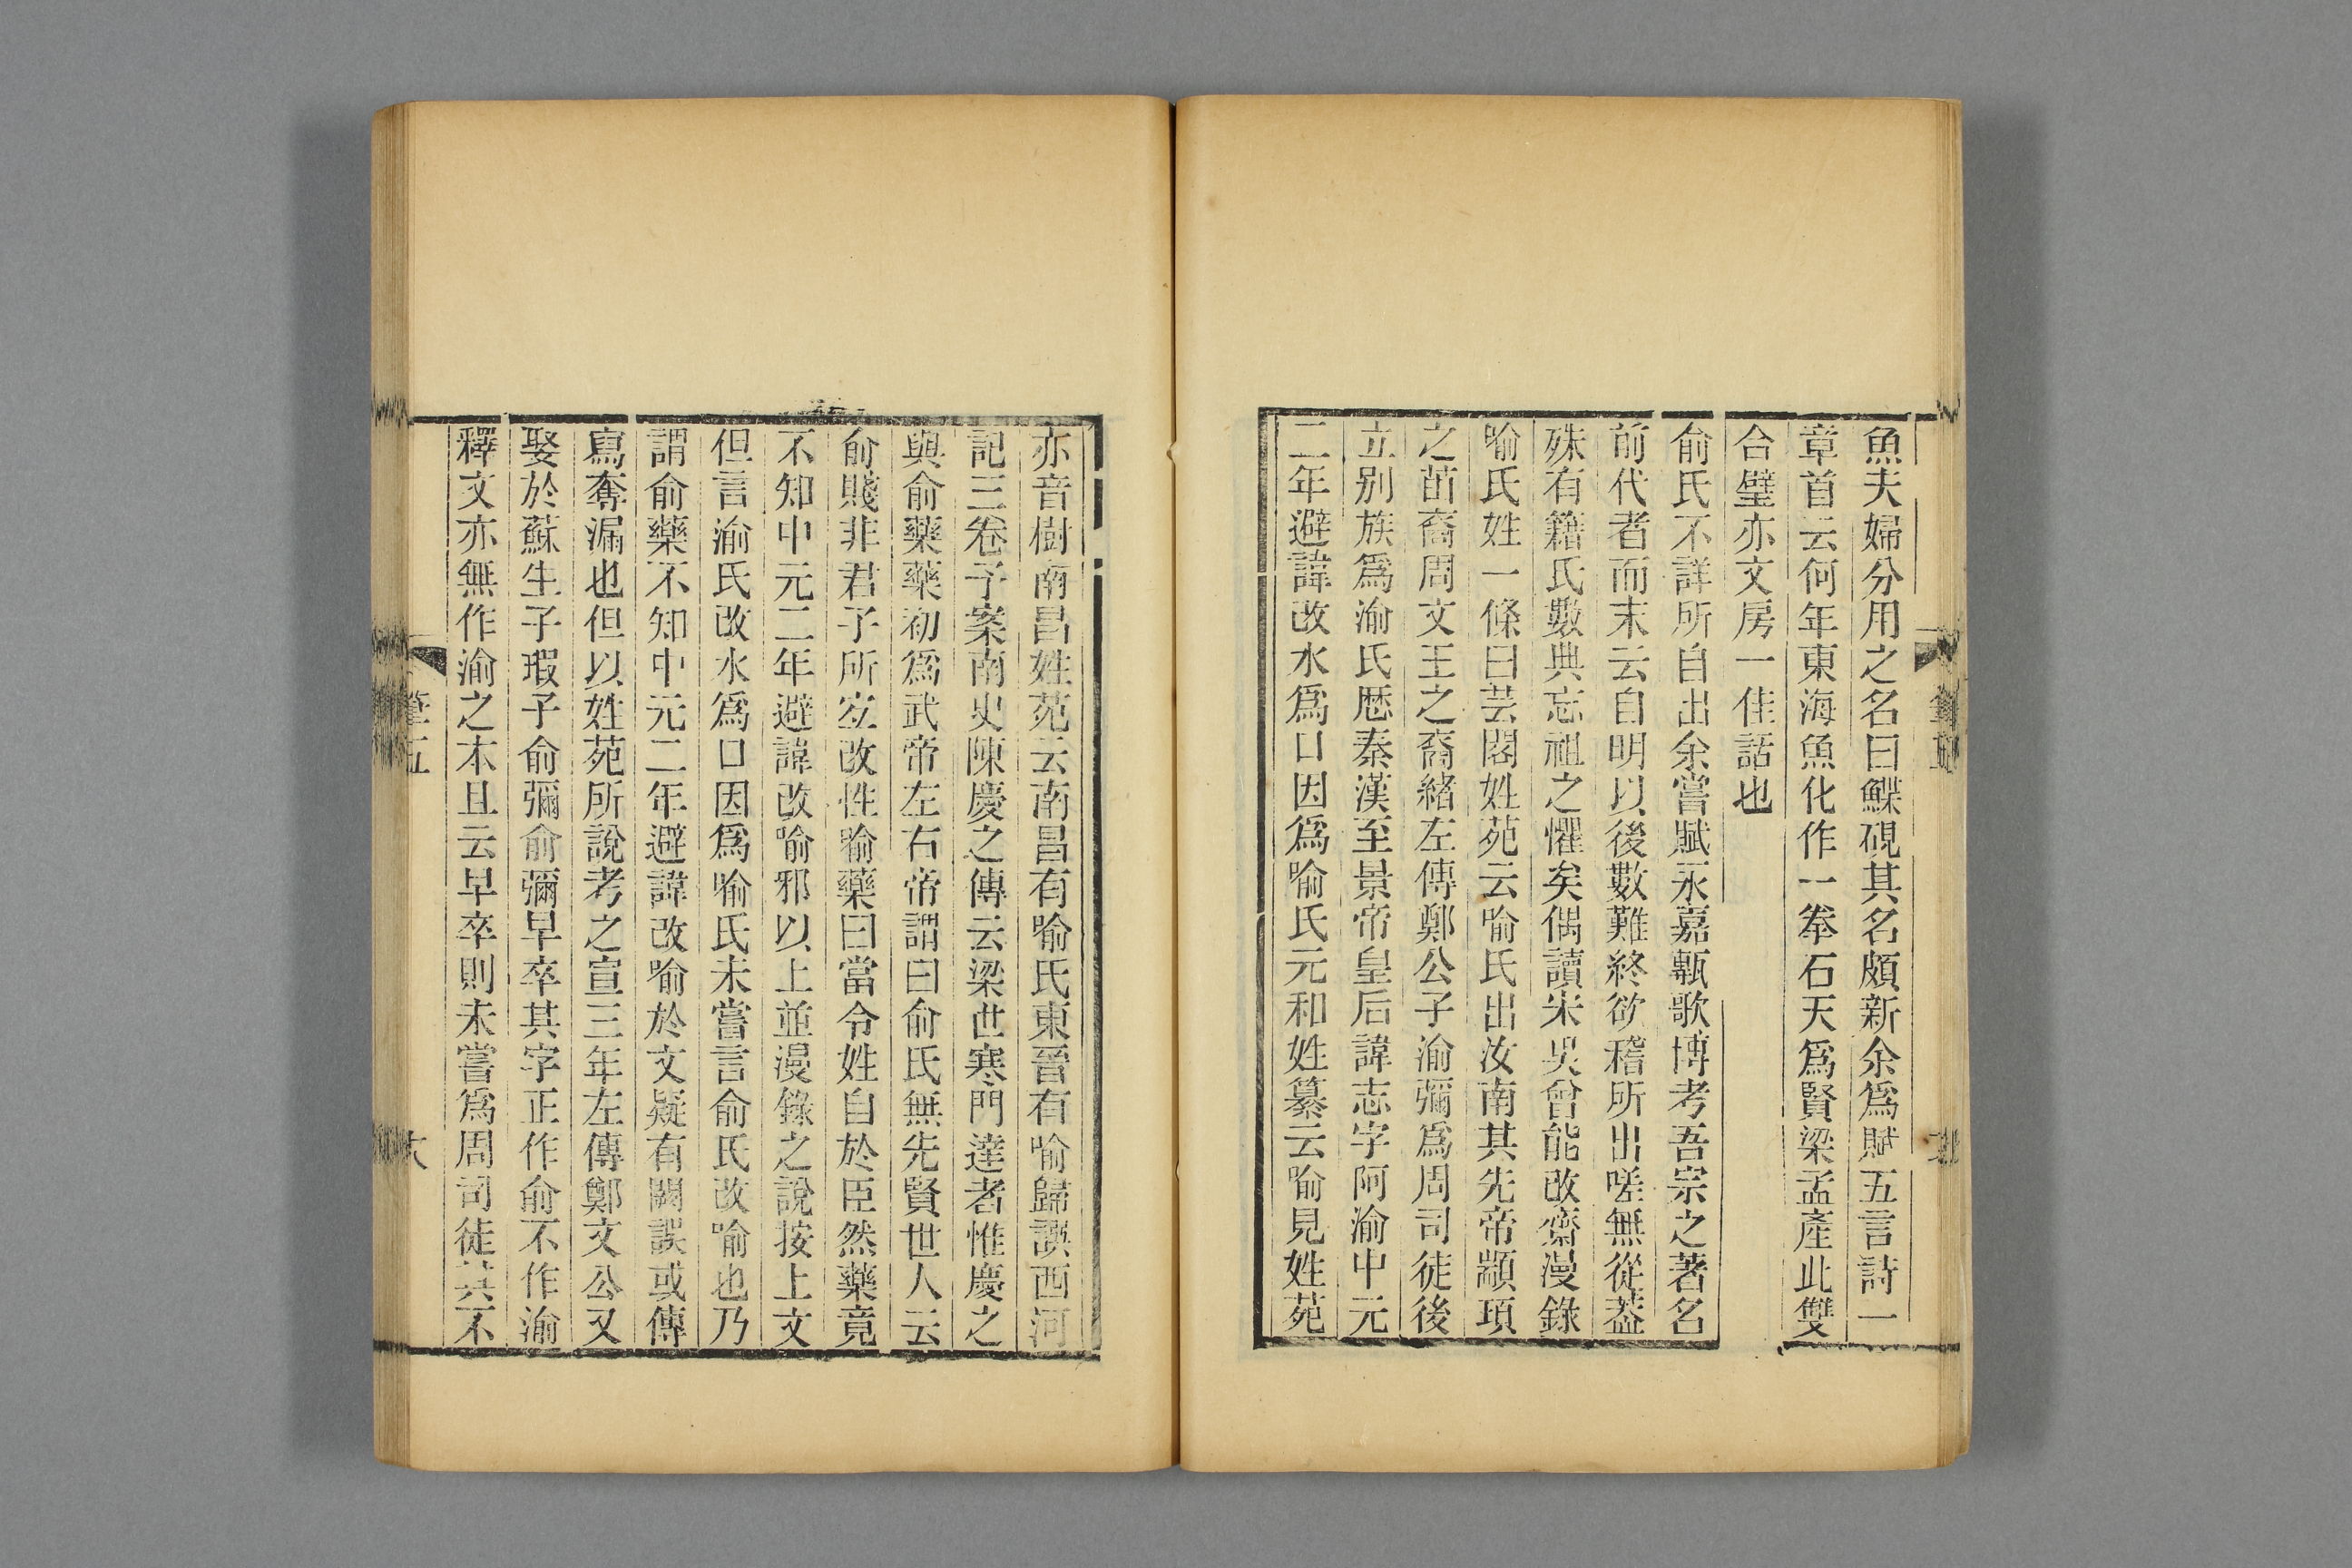 魚夫婦分用之名曰鰈硯其名頗新余爲賦五言詩一
章首云何年東海魚化作一拳石天爲賢梁孟產此雙
合璧亦文房一佳話也
俞氏不詳所自出余嘗賦永嘉甎歌博考吾宗之著名
前代者而末云自明以後數難終欲稽所出嗟無從葢
殊有籍氏數典忘祖之懼矣偶讀宋吳曾能改齋漫錄
喻氏姓一條曰芸閣姓苑云喻氏出汝南其先帝顓頊
之苗裔周文王之裔緒左傳鄭公子渝彌爲周司徒後
立别族爲渝氏歷秦漢至景帝皇后諱志字阿渝中元
二年避諱改水爲口因爲喻氏元和姓纂云喻見姓苑
亦音樹南昌姓苑云南昌有喻氏東晉有喻歸譔西河
記三卷予案南史陳慶之傳云梁世寒門達者惟慶之
與俞藥藥初爲武帝左右帝謂曰俞氏無先賢世人云
俞賤非君子所宐改性喻藥曰當令姓自於臣然藥竟
不知中元二年避諱改喻邪以上並漫錄之說按上文
但言渝氏改水爲口因爲喻氏未嘗言俞氏改喻也乃
謂俞藥不知中元二年避諱改喻於文疑有闕誤或傳
寫奪漏也但以姓苑所說考之宣三年左傳鄭文公又
娶於蘇生子瑕子俞彌俞彌早卒其字正作俞不作渝
釋文亦無作渝之本且云早卒則未嘗爲周司徒其不
筆五